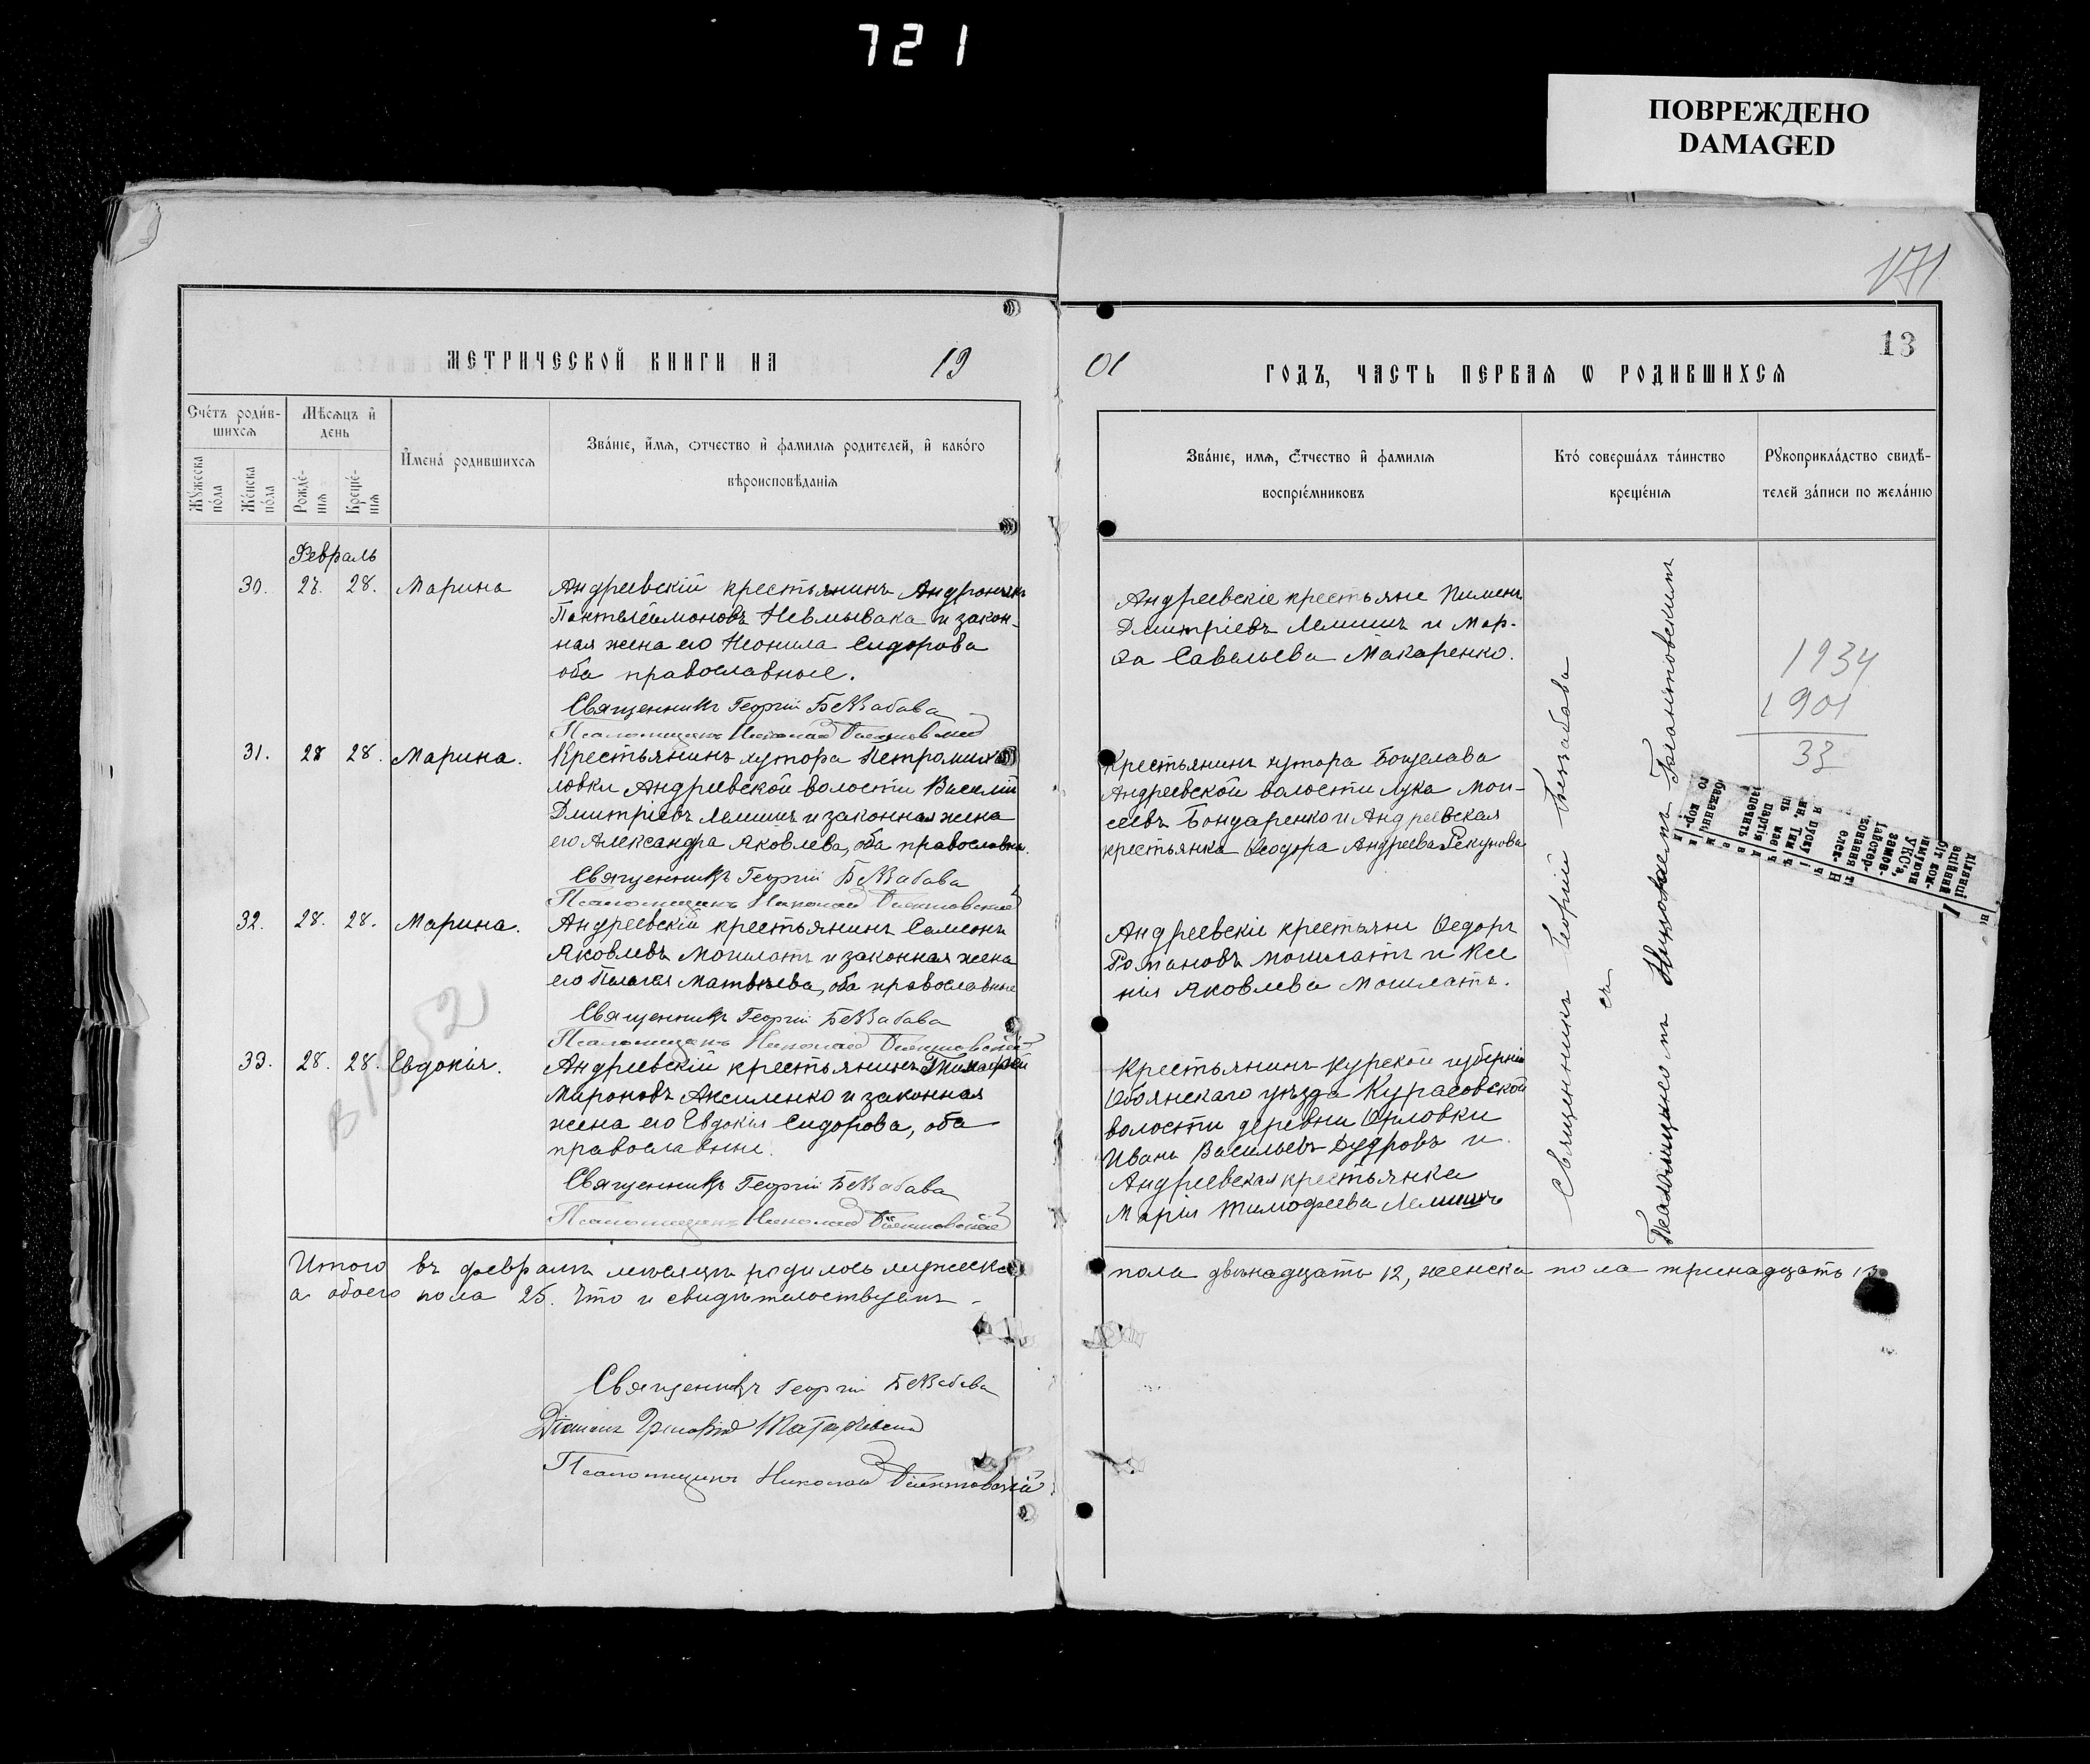 721
ПОВРЕЖДЕНО
DAMAGED
171
13
МЕТРИЧЕСКОЙ КНИГИ НА 19
01 ГОДЪ, ЧАСТЬ ПЕРВАЯ Ѡ РОДИВШИХСЯ
Счетъ родив-
шихся
Мѣсяцъ и
день
Имена родившихся
Званіе, имя, отчество и фамилія родителей, и какого
вѣроисповѣданія
Мужеска
пола
Женска
пола
Рожде-
нія
Креще-
нія
Званіе, имя, отчество и фамилія
воспріемниковъ
Кто совершалъ таинство
крещенія
Рукоприкладство свидѣ-
телей записи по желанію
Февраль
30. 27. 28. Марина
Андреевскій крестьянинъ
Пантелеймоновъ Невмывака и закон-
ная жена его Неонила Сидорова
оба православные.
Священникъ Георгій Беззабава
Псаломщикъ Николай
Андреевскіе крестьяне Пименъ
Дмитріевъ Лемишъ и Мар-
ѳа Савельева Макаренко.
31. 28 28. Марина.
Крестьянинъ хутора Петромиха
ловки Андреевской волости Василій
Дмитріевъ Лемишъ и законная жена
его Александра Яковлева, оба православн.
Священникъ Георгій Беззабава
Псаломщикъ Николай
Крестьянинъ хутора
Андреевской волости Лука Мои-
сеевъ Бондаренко и Андреевская
крестьянка Ѳеодора Андреева Рекунова
32. 28. 28. Марина.
Андреевскій крестьянинъ Самсонъ
Яковлевъ Могилатъ и законная жена
его Пелагея Матвѣева, оба православные
Священникъ Георгій Беззабава
Псаломщикъ Николай
Андреевскіе крестьяне Ѳедоръ
Романовъ Могилатъ и Ксе
нія Яковлева Могилатъ.
33. 28. 28. Евдокія.
Андреевскій крестьянинъ Тимофей
Мироновъ Аксиленко и законная
жена его Евдокія Сидорова, оба
православные.
Священникъ Георгій Беззабава
Псаломщикъ Николай
Крестьянинъ Курской губерніи
Обоянскаго уѣзда Курасовской
волости деревни Орловки
Иванъ Васильевъ Дудровъ и
Андреевская крестьянка
Марія Тимофеева Лемишъ
Священникъ Георгій Беззабава
съ
Псаломщикомъ Николаемъ
1934
1901
33
Итого въ февралѣ мѣсяцѣ родилось мужеска пола двѣнадцать 12, женска пола тринадцать 13
а обоего пола 25. Что и свидѣтельствуемъ
Священникъ Георгій Беззабава
Діаконъ Григорій
Псаломщикъ Николай